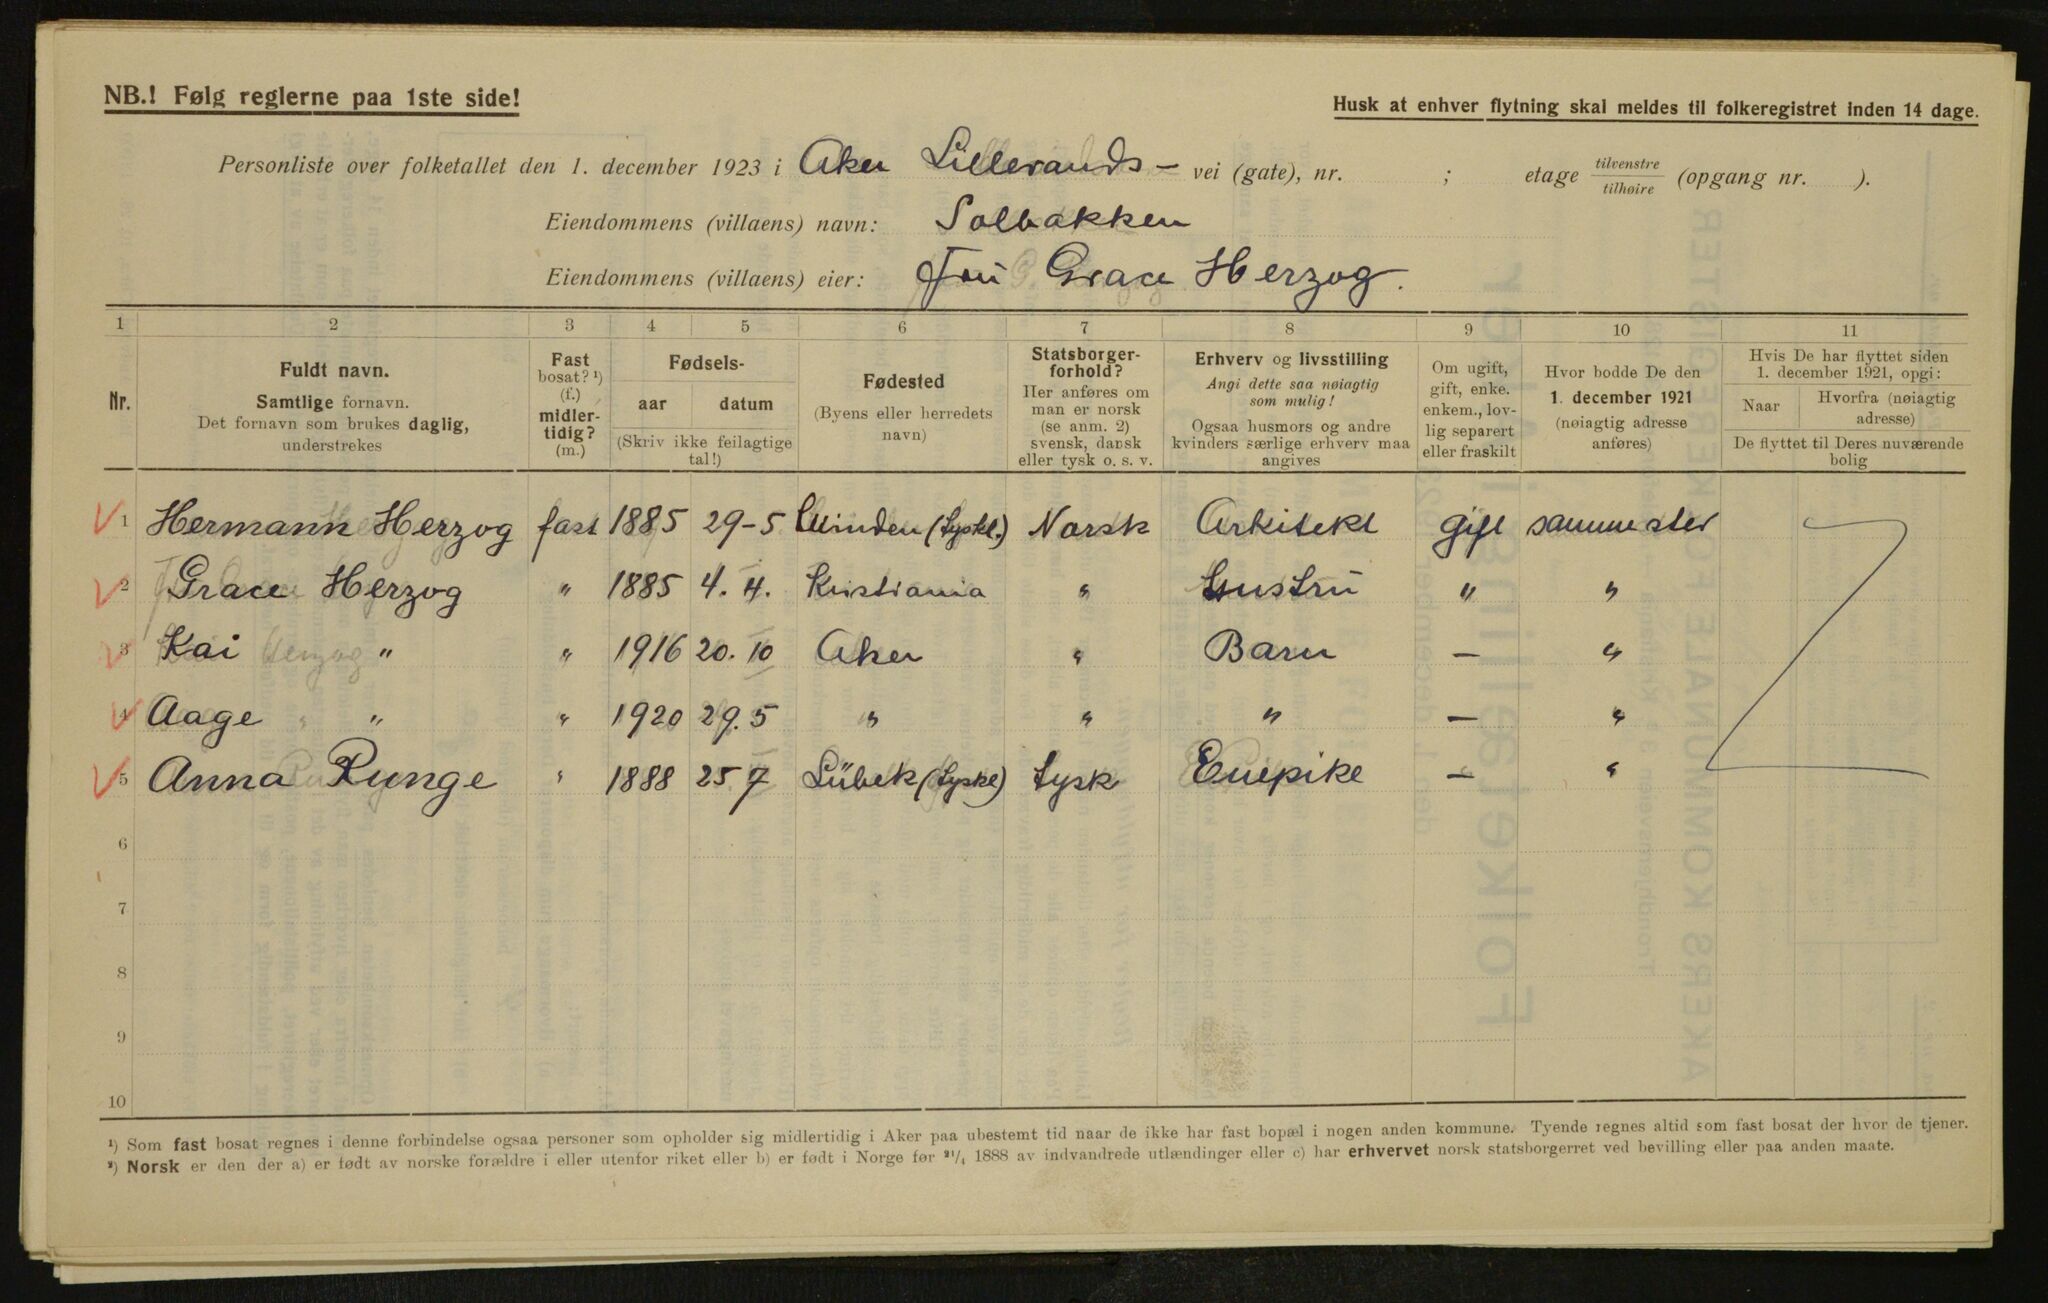 NB.! Følg reglerne paa 1ste side!
Husk at enhver flytning skal meldes til folkeregistret inden 14 dage.
Personliste over folketallet den 1. december 1923 i Aker Lillevands- vei (gate), nr. ; etage tilvenstre tilhøire (opgang nr. ).
Eiendommens (villaens) navn: Solbakken
Eiendommens (villaens) eier: Fru Grace Herzog.
1 2 3 4 5 6 7 8 9 10 11
Nr.
Fuldt navn.
Samtlige fornavn.
Det fornavn som brukes daglig,
understrekes
Fast
bosat? ¹)
(f.)
midler-
tidig?
(m.)
Fødsels-
aar datum
(Skriv ikke feilagtige
tal!)
Fødested
(Byens eller herredets
navn)
Statsborger-
forhold?
Her anføres om
man er norsk
(se anm. 2)
svensk, dansk
eller tysk o. s. v.
Erhverv og livsstilling
Angi dette saa nøiagtig
som mulig!
Ogsaa husmors og andre
kvinders særlige erhverv maa
angives
Om ugift,
gift, enke.
enkem., lov-
lig separert
eller fraskilt
Hvor bodde De den
1. december 1921
(nøiagtig adresse
anføres)
Hvis De har flyttet siden
1. december 1921, opgi:
Naar Hvorfra (nøiagtig
adresse)
De flyttet til Deres nuværende
bolig
1 Hermann Herzog fast 1885 29-5 Minden (Tyskl.) Norsk Arkitekt gift samme sted
2 Grace Herzog " 1885 4. 4. Kristiania " Hustru " "
3 Kai " " 1916 20. 10 Aker " Barn — "
4 Aage " " 1920 29. 5 " " " — "
5 Anna Runge " 1888 25 7 Lübek (Tyskl) Tysk Enepike — "
6
7
8
9
10
¹) Som fast bosat regnes i denne forbindelse ogsaa personer som opholder sig midlertidig i Aker paa ubestemt tid naar de ikke har fast bopæl i nogen anden kommune. Tyende regnes altid som fast bosat der hvor de tjener.
²) Norsk er den der a) er født av norske forældre i eller utenfor riket eller b) er født i Norge før ²¹/₄ 1888 av indvandrede utlændinger eller c) har erhvervet norsk statsborgerret ved bevilling eller paa anden maate.